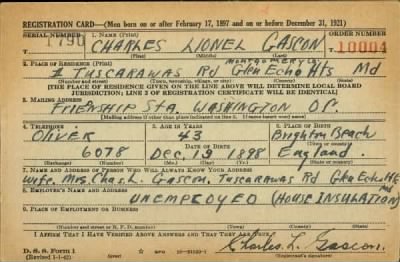 REGISTRATION CARD—(Men born on or after February 17, 1897 and on or before December 31, 1921)
SERIAL NUMBER 1. NAME (Print) ORDER NUMBER
1790 CHARLES LIONEL GASCON 10004
(First) (Middle) (Last)
2. PLACE OF RESIDENCE (Print) MONTGOMERY CO.
1 TUSCARAWAS Rd Glen Echo Hts Md
(Number and street) (Town, township, village, or city) (County) (State)
[THE PLACE OF RESIDENCE GIVEN ON THE LINE ABOVE WILL DETERMINE LOCAL BOARD
JURISDICTION; LINE 2 OF REGISTRATION CERTIFICATE WILL BE IDENTICAL]
3. MAILING ADDRESS
FRIENSHIP STA. WASHINGTON D.C.
(Mailing address if other than place indicated on line 2. If same insert word same)
4. TELEPHONE 5. AGE IN YEARS 6. PLACE OF BIRTH
OLIVER 43 Brighton Beach
DATE OF BIRTH (Town or county)
6078 Dec. 19 1898 England
(Exchange) (Number) (Mo.) (Day) (Yr.) (State or country)
7. NAME AND ADDRESS OF PERSON WHO WILL ALWAYS KNOW YOUR ADDRESS
Wife, Mrs Chas. L. Gascon, Tuscarawas Rd Glen Echo Hts Md
8. EMPLOYER'S NAME AND ADDRESS
UNEMPLOYED (HOUSE INSULATION)
9. PLACE OF EMPLOYMENT OR BUSINESS
(Number and street or R. F. D. number) (Town) (County) (State)
I AFFIRM THAT I HAVE VERIFIED ABOVE ANSWERS AND THAT THEY ARE TRUE.
D. S. S. Form 1
(Revised 1-1-42) (over) Charles L. Gascon.